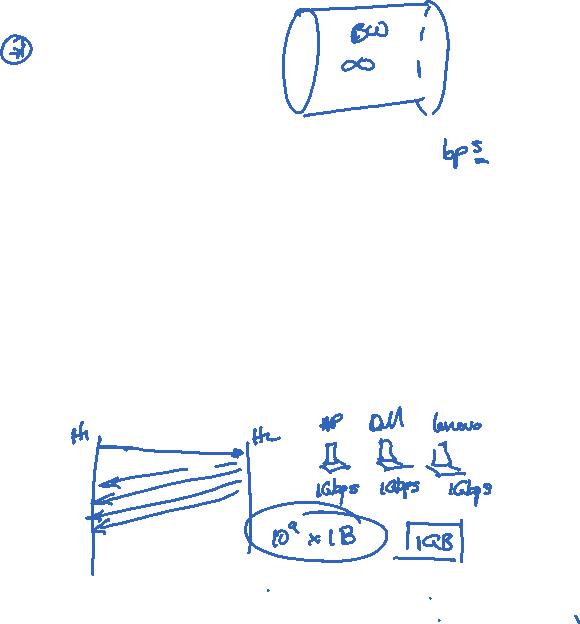 BW
∞
bps
H1 H2 HP Dell lenovo
1Gbps 1Gbps 1Gbps
10⁹ × 1B 1GB